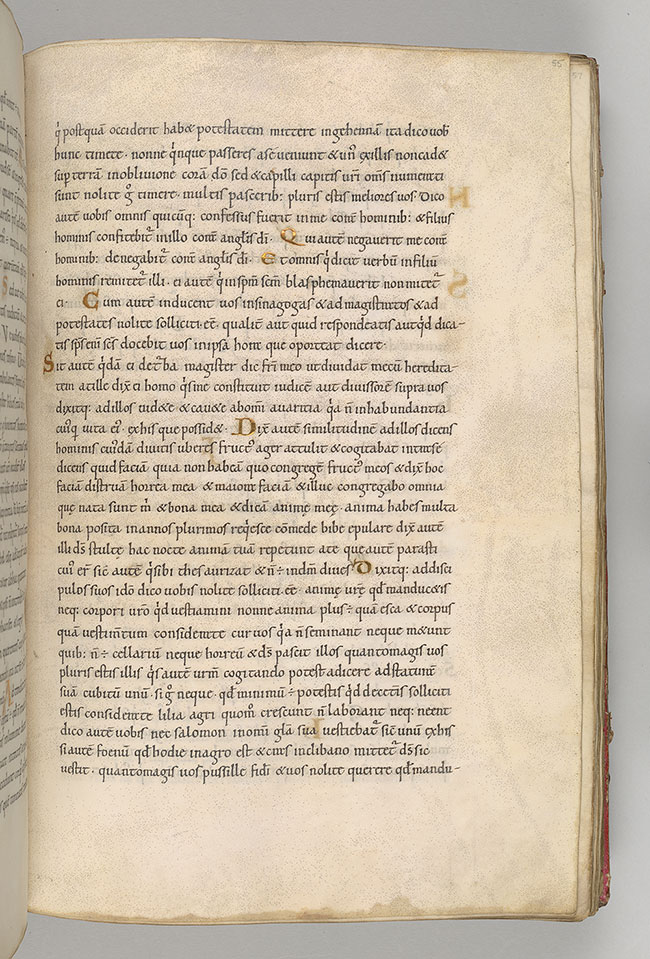 q̇ postquā occiderit habꝫ potestatem mittere ingehennā ita dico uob̄
hunc timete · nonne q̇nque passeres ase ueniunt & un᷒ exillis noncad&
sup̱ terrā inobliuione corā dō sed & capilli capitis ur̄i om̄s numerati
sunt nolite g̊ timere · multis passerib: pluris estis meliores uos · Dico
autē uobis omnis quicūq: confessus fuerit in me corā hominib: & filius
hominis confitebit᷑ inillo corā angl̄is dī · Qui autē negauerit me corā
hominib: denegabit᷑ corā angl̄is dī · Et omnis q̇ dicit uerbū in filiū
hominis remittet᷑ illi · ei autē q̇ insp̄m sc̄m blasphemauerit non mittet᷑
ei · Cum autē inducent uos insinagogas & ad magistratos & ad
potestates nolite solliciti · ēē · qualit̄ aut quid respondeatis aut q̇d dica-
tis sp̄s em̄ sc̄s docebit uos inipsa hora que oportat dicere ·
Sit autē q̇dā ei de turba magister dic fr̄i meo ut diuidat mecū heredita-
tem at ille dix̄ ei homo q̇s me constituit iudicē aut diuisorē supra uos
dixitq: ad illos uid&e & cau&e ab om̄i auaritia q̇a n̄ inhabundantia
cui᷒q̇ uita ei᷒ · ex his que possid& · Dix̄ autē similitudinē ad illos dicens
hominis cui᷒dā diuitis uberes fruct᷒ ager attulit & cogitabat intra se
dicens quid faciā quia non habeā quo congregē fruct᷒ meos & dix̄ hoc
faciā distruā horrea mea & maiora faciā & illuc congregabo omnia
quę nata sunt m̄ & bona mea & dicā animę męę · anima habes multa
bona posita in annos plurimos req̇esce comede bibe epulare dix̄ autē
illi ds̄ stultę hac nocte anima tuā repetunt ate que autē parasti
cui᷒ er̄ sic autē q̇ sibi thesaurizat & n̄ ÷ indm̄ diues Dixitq: ad disci
pulos suos ido dico uobis nolite solliciti · ēē · animę urę qd̄ manduc&is
neq: corpori ur̄o q̇d uestiamini nonne anima plus ÷ quā esca & corpus
quā uestim̄tum considerate coruos q̇a n̄ seminant neque m&unt
quib: n̄ ÷ cellariū neque horreū & ds̄ pascit illos quanto magis uos
pluris estis illis q̇s autē ur̄m cogitando potest adicere ad staturē
suā cubitū unū · si g̊ neque · qd̄ minimū ÷ potestis q̇d de cet̄is solliciti
estis considerate lilia agri quom̊ crescunt n̄ laborant neq: neent
dico autē uobis nec salomon inom̄i gl̄a sua uestiebat᷑ sic unū ex his
si autē foenū qd̄ hodie inagro est & cras inclibano mittet᷑ ds̄ sic
uestit · quanto magis uos pussille fidī & uos nolite querere qd̄ mandu-